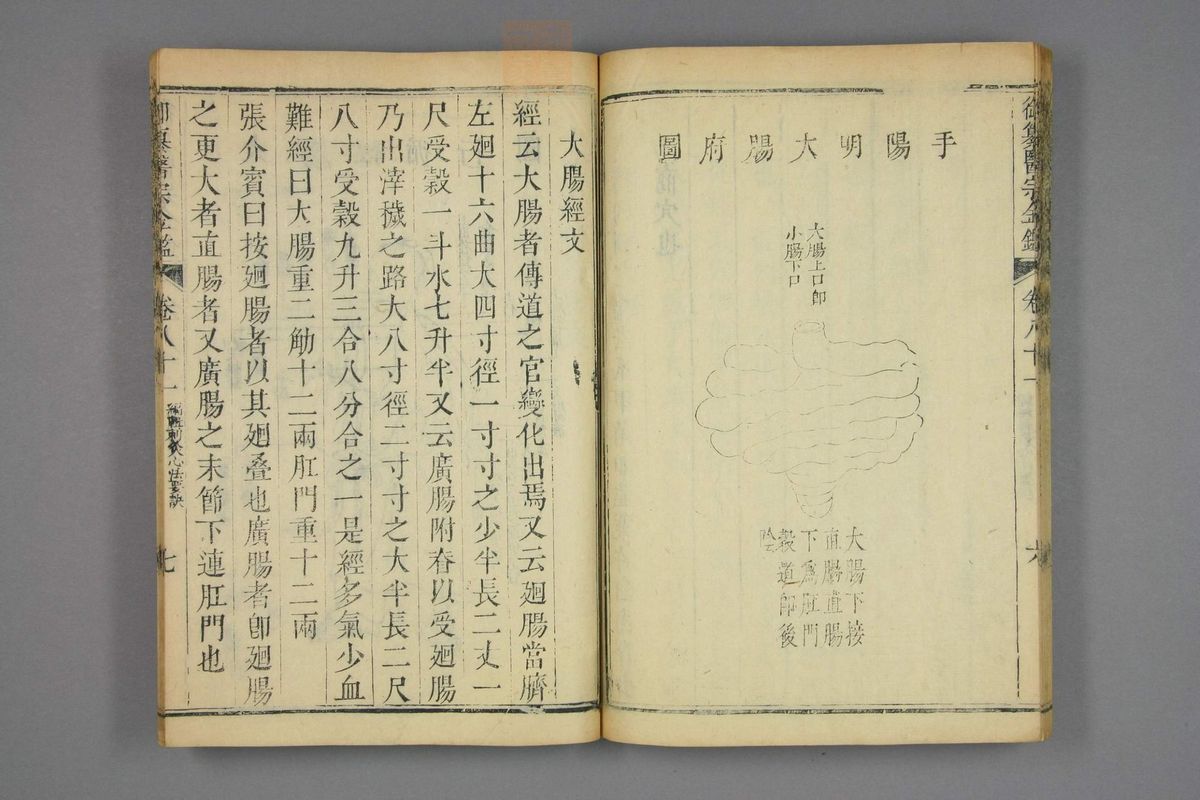 御纂醫宗金鑑 卷八十一 六
手陽明大腸府圖
大腸上口即
小腸下口
大腸下接
直腸直腸
下為肛門
穀道即後
陰
大腸經文
經云大腸者傳道之官變化出焉又云廻腸當臍
左廻十六曲大四寸徑一寸寸之少半長二丈一
尺受穀一斗水七升半又云廣腸附脊以受廻腸
乃出滓穢之路大八寸徑二寸寸之大半長二尺
八寸受穀九升三合八分合之一是經多氣少血
難經曰大腸重二觔十二兩肛門重十二兩
張介賓曰按廻腸者以其廻疊也廣腸者即廻腸
之更大者直腸者又廣腸之末節下連肛門也
御纂醫宗金鑑 卷八十一 編輯刺灸心法要訣 七